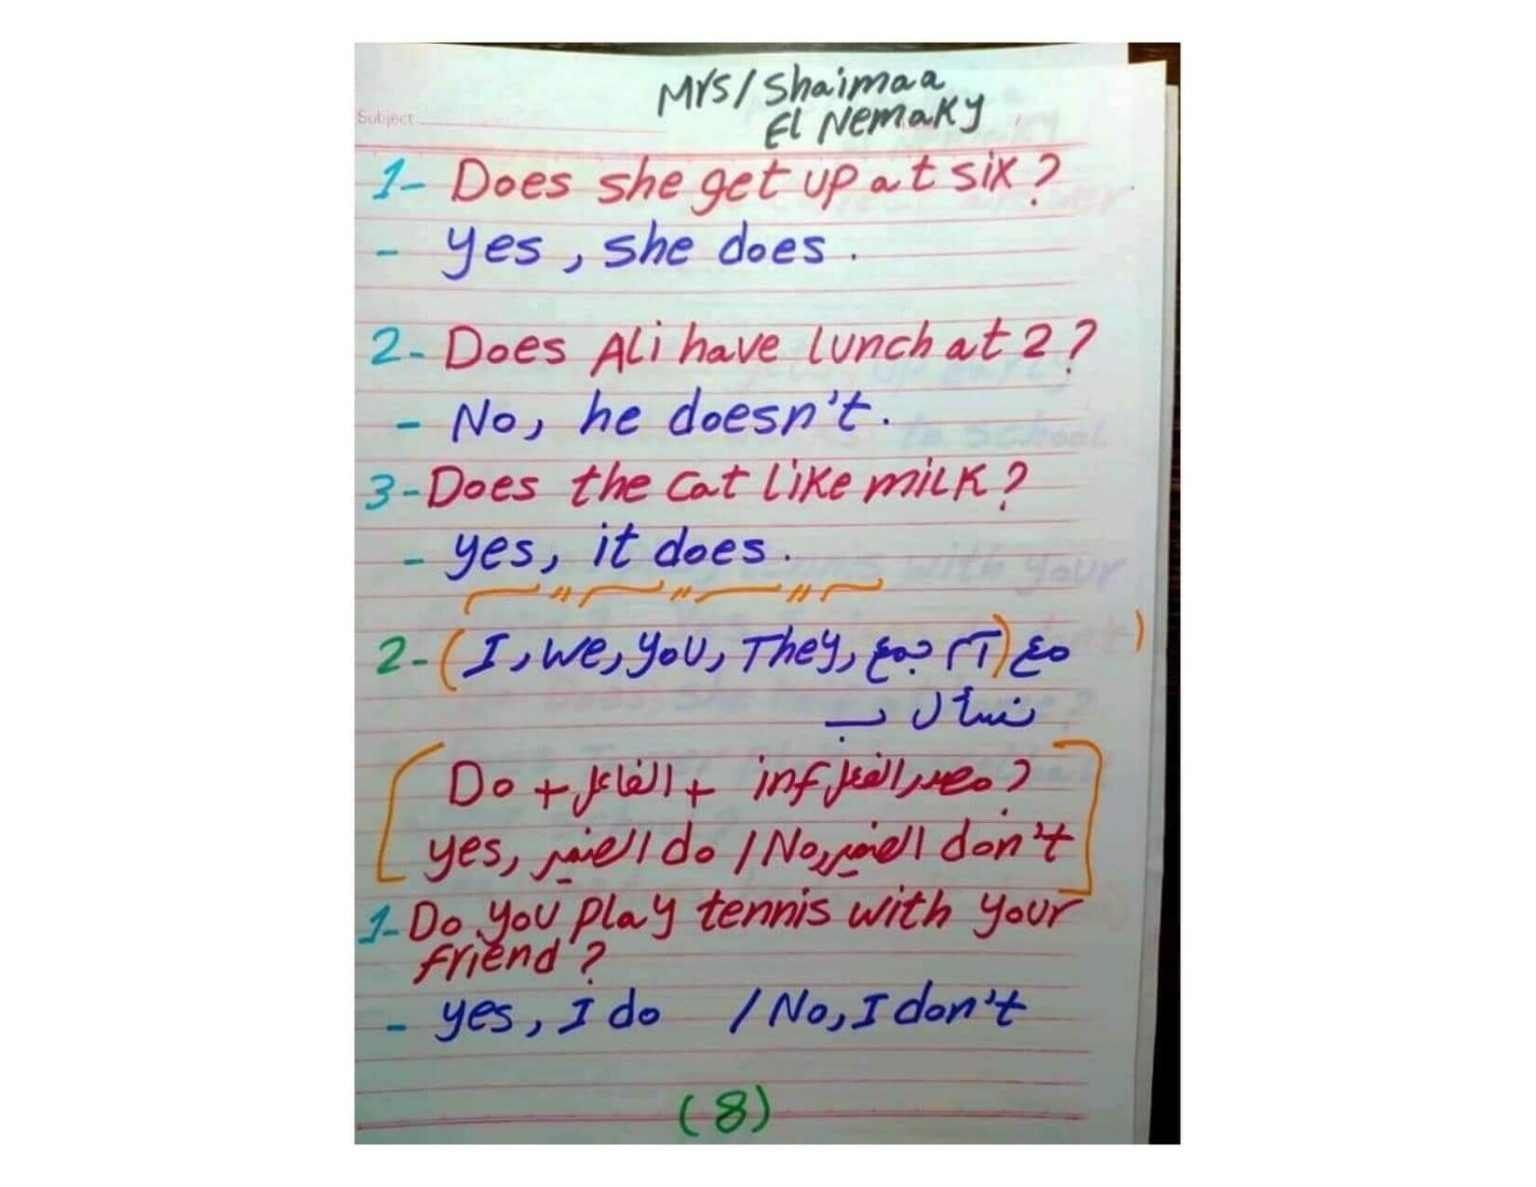 Mrs/Shaimaa
El Nemaky
Subject
1- Does she get up at six?
- yes, she does.
2- Does Ali have lunch at 2?
- No, he doesn't.
3- Does the cat like milk?
- yes, it does.
2- (I, we, you, They, اسم جمع) مع
نسأل بـ
Do + الفاعل + inf مصدر الفعل?
yes, الضمير do / No, الضمير don't
1- Do you play tennis with your
friend?
- yes, I do / No, I don't
(8)